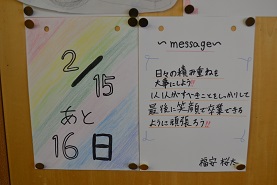 2/15
あと
16日
～message～
日々の積み重ねを
大事にしよう!!
1人1人がすべきことをしっかりして
最後に笑顔で卒業できる
ように頑張ろう!!
福安 桜太